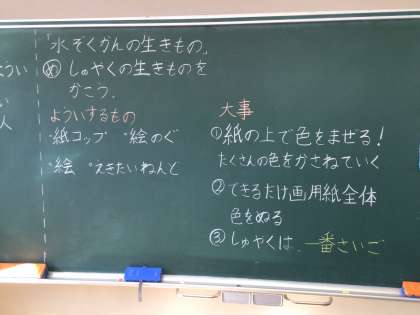 「水ぞくかんの生きもの」
め しゅやくの生きものを
かこう。
よういするもの
・紙コップ ・絵のぐ
・絵 ・えきたいねんど
大事
①紙の上で色をまぜる!
たくさんの色をかさねていく
②できるだけ画用紙全体
色をぬる
③しゅやくは、一番さいご
ようい
人